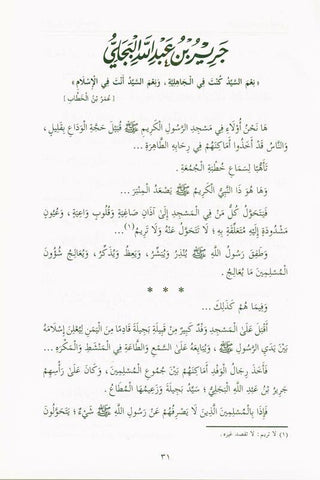 جَرِيْرُ بْنُ عَبْدِ اللهِ الْبَجَلِيُّ
« نِعْمَ السَّيِّدُ كُنْتَ فِي الْجَاهِلِيَّةِ ، وَنِعْمَ السَّيِّدُ أَنْتَ فِي الْإِسْلَامِ »
[ عُمَرُ بْنُ الْخَطَّابِ ]
هَا نَحْنُ أُوْلَاءِ فِي مَسْجِدِ الرَّسُولِ الْكَرِيمِ ﷺ قُبَيْلَ حَجَّةِ الْوَدَاعِ بِقَلِيلٍ ،
وَالنَّاسُ قَدْ أَخَذُوا أَمَاكِنَهُمْ فِي رِحَابِهِ الطَّاهِرَةِ ...
تَأَهُّبًا لِسَمَاعِ خُطْبَةِ الْجُمُعَةِ .
وَهَا هُوَ ذَا النَّبِيُّ الْكَرِيمُ ﷺ يَصْعَدُ الْمِنْبَرَ ...
فَيَتَحَوَّلُ كُلُّ مَنْ فِي الْمَسْجِدِ إِلَىٰ آذَانٍ صَاغِيَةٍ وَقُلُوبٍ وَاعِيَةٍ ، وَعُيُونٍ
مَشْدُودَةٍ إِلَيْهِ مُتَعَلِّقَةٍ بِهِ ؛ لَا تَتَحَوَّلُ عَنْهُ وَلَا تَرِيمُ(١) ...
وَطَفِقَ رَسُولُ اللهِ ﷺ يُنْذِرُ وَيُبَشِّرُ ، وَيَعِظُ وَيُذَكِّرُ ، وَيُعَالِجُ شُؤُونَ
الْمُسْلِمِينَ مَا يُعَالِجُ .
* * *
وَفِيمَا هُمْ كَذَلِكَ ...
أَقْبَلَ عَلَىٰ الْمَسْجِدِ وَفْدٌ كَبِيرٌ مِنْ قَبِيلَةِ بَجِيلَةَ قَادِمًا مِنَ الْيَمَنِ لِيُعْلِنَ إِسْلَامَهُ
بَيْنَ يَدَيِ الرَّسُولِ ﷺ ، وَيُبَايِعَهُ عَلَىٰ السَّمْعِ وَالطَّاعَةِ فِي الْمَنْشَطِ وَالْمَكْرَهِ ...
فَأَخَذَ رِجَالُ الْوَفْدِ أَمَاكِنَهُمْ بَيْنَ جُمُوعِ الْمُسْلِمِينَ ، وَكَانَ عَلَىٰ رَأْسِهِمْ
جَرِيرُ بْنُ عَبْدِ اللهِ الْبَجَلِيُّ ؛ سَيِّدُ بَجِيلَةَ وَزَعِيمُهَا الْمُطَاعُ .
فَإِذَا بِالْمُسْلِمِينَ الَّذِينَ لَا يَصْرِفُهُمْ عَنْ رَسُولِ اللهِ ﷺ شَيْءٌ ؛ يَتَحَوَّلُونَ
(١) لا تريم : لا تقصد غيره .
٣١